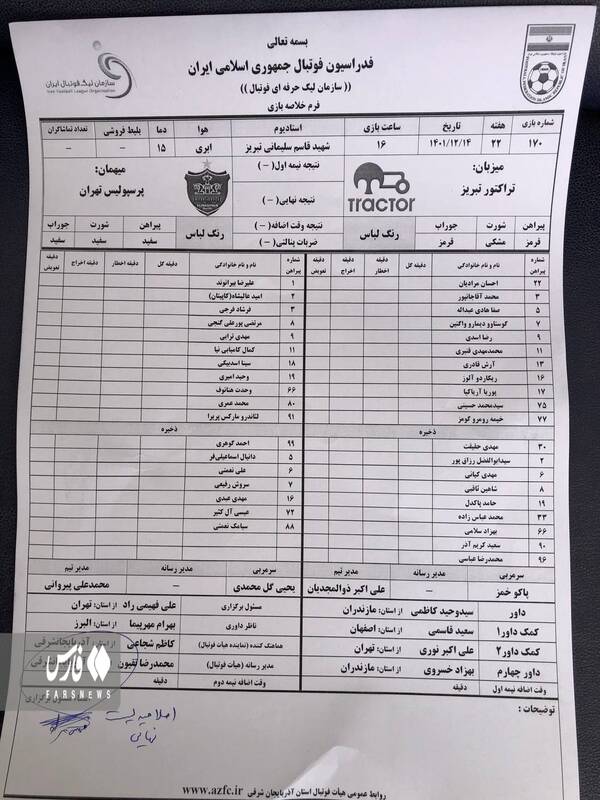 بسمه تعالی
فدراسیون فوتبال جمهوری اسلامی ایران
(( سازمان لیگ حرفه ای فوتبال ))
فرم خلاصه بازی
سازمان لیگ فوتبال ایران
Iran Football League Organization
شماره بازی هفته تاریخ ساعت بازی استادیوم هوا دما بلیط فروشی تعداد تماشاگران
۱۷۰ ۲۲ ۱۴۰۱/۱۲/۱۴ ۱۶ شهید قاسم سلیمانی تبریز ابری ۱۵ – –
میزبان: نتیجه نیمه اول: ( – ) میهمان:
تراکتور تبریز TRACTOR نتیجه نهایی: ( – ) پرسپولیس تهران
پیراهن شورت جوراب رنگ لباس نتیجه وقت اضافه: ( – ) رنگ لباس پیراهن شورت جوراب
قرمز مشکی قرمز ضربات پنالتی: ( – ) سفید سفید سفید
شماره پیراهن نام و نام خانوادگی دقیقه گل دقیقه اخطار دقیقه اخراج دقیقه تعویض شماره پیراهن نام و نام خانوادگی دقیقه گل دقیقه اخطار دقیقه اخراج دقیقه تعویض
۲۲ احسان مرادیان ۱ علیرضا بیرانوند
۳ محمد آقاجانپور ۲ امید عالیشاه(کاپیتان)
۵ صفا هادی عبداله ۳ فرشاد فرجی
۷ گوستاوو دیمارو واگنین ۸ مرتضی پورعلی گنجی
۹ رضا اسدی ۹ مهدی ترابی
۱۱ محمدمهدی قنبری ۱۱ کمال کامیابی نیا
۱۳ آرش قادری ۱۸ سینا اسدبیگی
۱۶ ریکاردو آلوز ۱۹ وحید امیری
۱۷ پوریا آریاکیا ۶۶ وحدت هنانوف
۷۵ سیدمحمد حسینی ۸۰ محمد عمری
۷۷ خیمه رومرو گومز ۹۱ لئاندرو مارکس پریرا
ذخیره ذخیره
۳۰ مهدی حقیقت ۹۹ احمد گوهری
۲ سیدابوالفضل رزاق پور ۵ دانیال اسماعیلی‌فر
۶ مهدی کیانی ۶ علی نعمتی
۸ شاهین ثاقبی ۷ سروش رفیعی
۱۹ حامد پاکدل ۱۶ مهدی عبدی
۳۳ محمد عباس زاده ۷۲ عیسی آل کثیر
۶۶ بهزاد سلامی ۸۸ سیامک نعمتی
۹۰ سعید کریم آذر
۹۶ محمدرضا عباسی
سرمربی مدیر رسانه مدیر تیم سرمربی مدیر رسانه مدیر تیم
پاکو خمز – علی اکبر ذوالمجدیان یحیی گل محمدی – محمدعلی پیروانی
داور سیدوحید کاظمی از استان: مازندران مسئول برگزاری علی فهیمی راد از استان: تهران
کمک داور۱ سعید قاسمی از استان: اصفهان ناظر داوری بهرام مهرپیما از استان: البرز
کمک داور۲ علی اکبر نوری از استان: تهران هماهنگ کننده (نماینده هیأت فوتبال) کاظم شجاعی آذربایجانشرقی
داور چهارم بهزاد خسروی از استان: مازندران مدیر رسانه (هیأت فوتبال) محمدرضا
وقت اضافه نیمه اول دقیقه وقت اضافه نیمه دوم دقیقه
توضیحات :
فارس
FARSNEWS
نهایی
روابط عمومی هیأت فوتبال استان آذربایجان شرقی www.azfc.ir